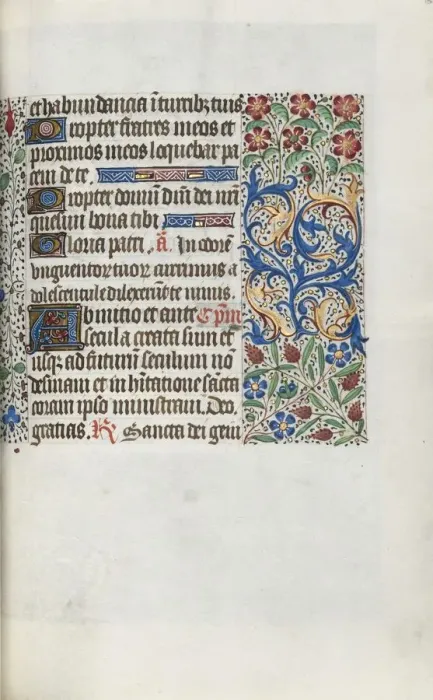 et habundancia i turribz tuis
Propter fratres meos et
proximos meos loquebar pa
cem de te.
Propter domu dni dei nri
quesiui bona tibi
Gloria patri. a. In odore
unguentor tuor currimus a
dolescentule dilexerut te nimis.
Ab initio et ante Cplm
secula creata sum et
usqz ad futuru seculum no
desinam et in hitatione sacta
coram ipso ministraui. Deo.
gratias. R Sancta dei geni